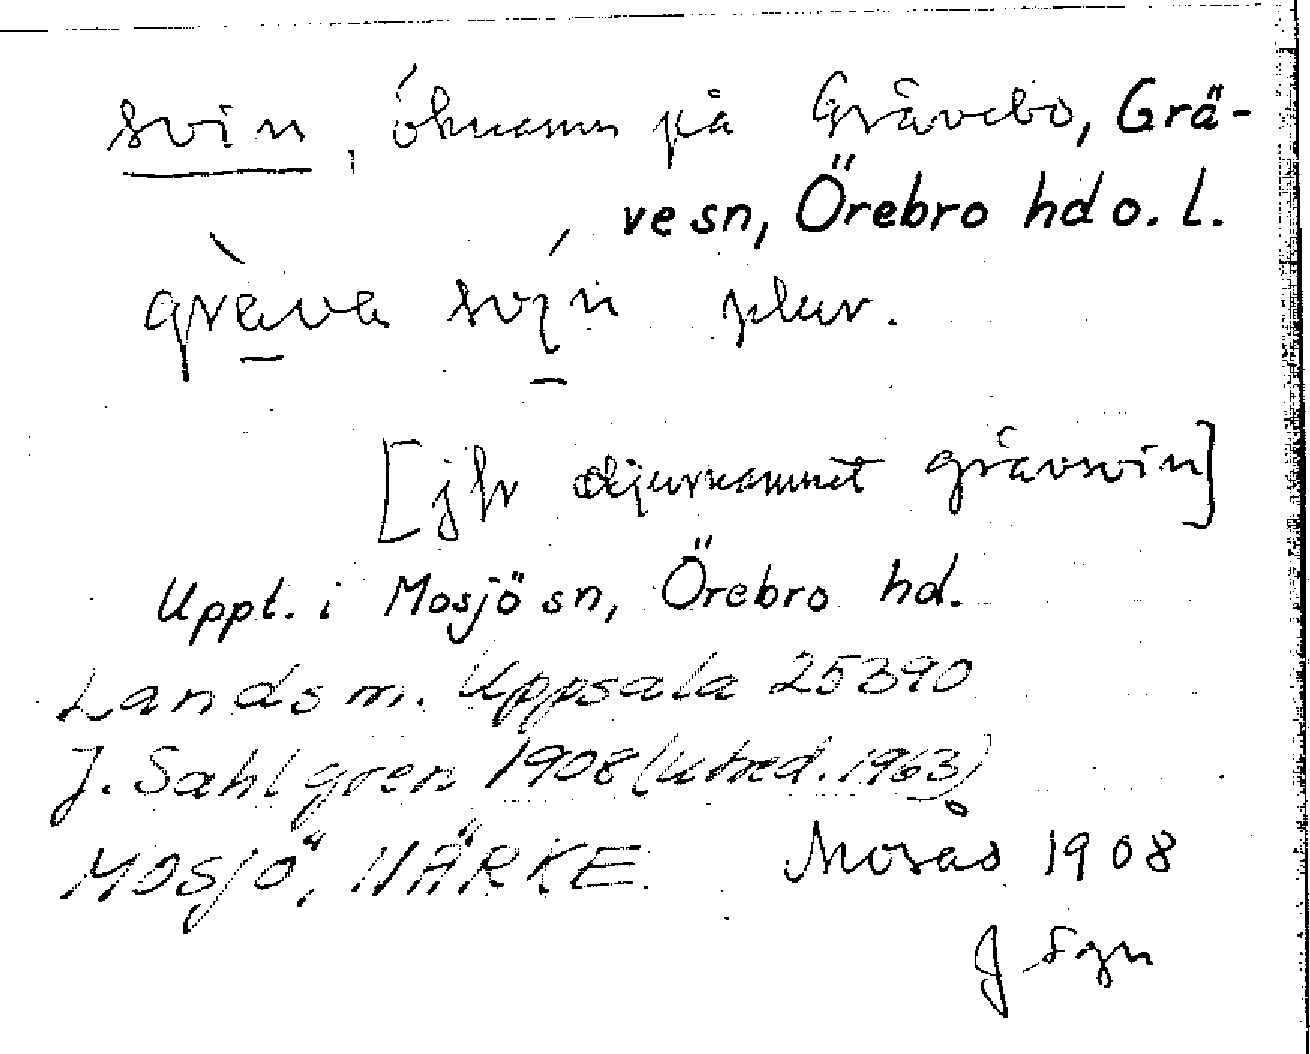 svin, öknamn på Grävebo, Grä-
ve sn, Örebro hd o. l.
gràva svín plur.
[jfr djurnamnet grävsvin]
Uppt. i Mosjö sn, Örebro hd.
Landsm. Uppsala 25390
J. Sahlgren 1908 (utred. 1963)
MOSJÖ, NÄRKE. Mosås 1908
J Sgn